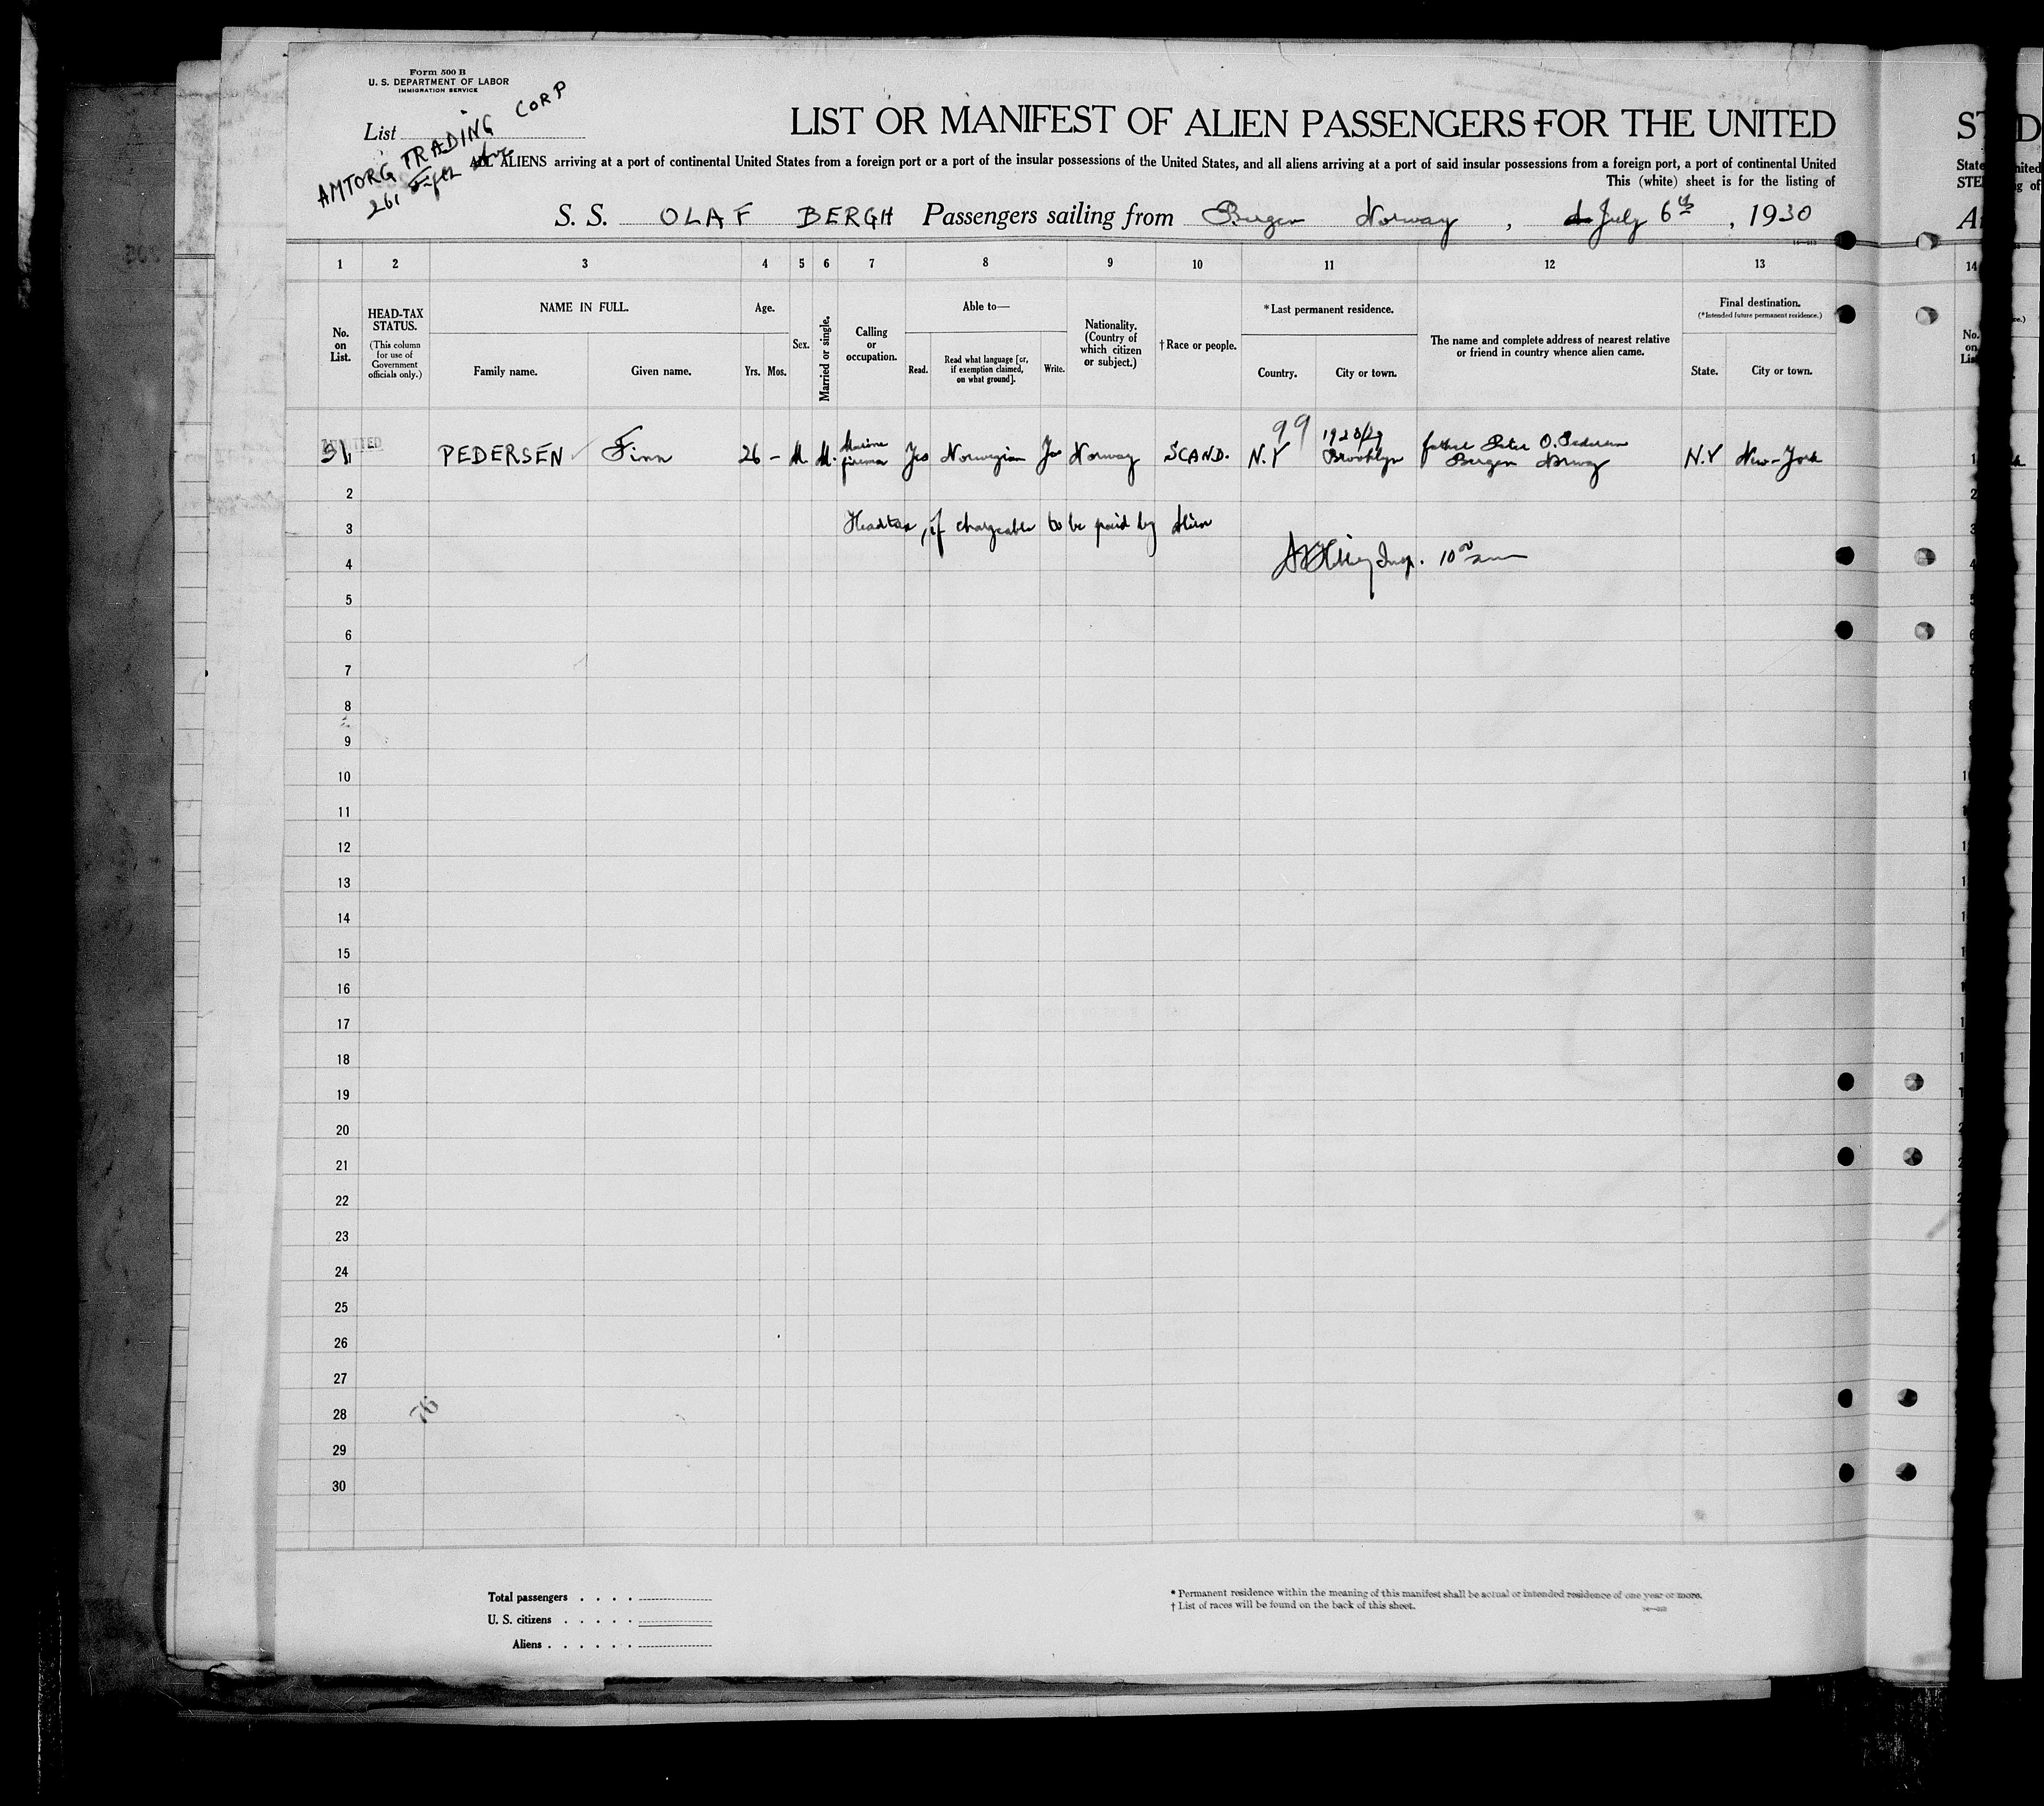 Form 500 B
U. S. DEPARTMENT OF LABOR
IMMIGRATION SERVICE
List
AMTORG TRADING CORP
261 Fifth Ave
LIST OR MANIFEST OF ALIEN PASSENGERS FOR THE UNITED
ALL ALIENS arriving at a port of continental United States from a foreign port or a port of the insular possessions of the United States, and all aliens arriving at a port of said insular possessions from a foreign port, a port of continental United
This (white) sheet is for the listing of
S. S. OLAF BERGH Passengers sailing from Bergen Norway, July 6th, 1930
1 2 3 4 5 6 7 8 9 10 11 12 13 14
No. on List.
HEAD-TAX STATUS.
(This column for use of Government officials only.)
NAME IN FULL.
Family name. Given name.
Age.
Yrs. Mos.
Sex.
Married or single.
Calling or occupation.
Able to—
Read. Read what language [or, if exemption claimed, on what ground]. Write.
Nationality. (Country of which citizen or subject.)
†Race or people.
*Last permanent residence.
Country. City or town.
The name and complete address of nearest relative or friend in country whence alien came.
Final destination.
(*Intended future permanent residence.)
State. City or town.
99 1928/29
ADMITTED
1 PEDERSEN Finn 26 – M M. Marine fireman Yes Norwegian Yes Norway SCAND. N.Y Brooklyn father Peter O. Pedersen Bergen Norway N.Y New-York
2
3 Headtax, if chargeable to be paid by alien
4 Insp. 10 00 am
5
6
7
8
9
10
11
12
13
14
15
16
17
18
19
20
21
22
23
24
25
26
27
28 76
29
30
Total passengers
U. S. citizens
Aliens
* Permanent residence within the meaning of this manifest shall be actual or intended residence of one year or more.
† List of races will be found on the back of this sheet.